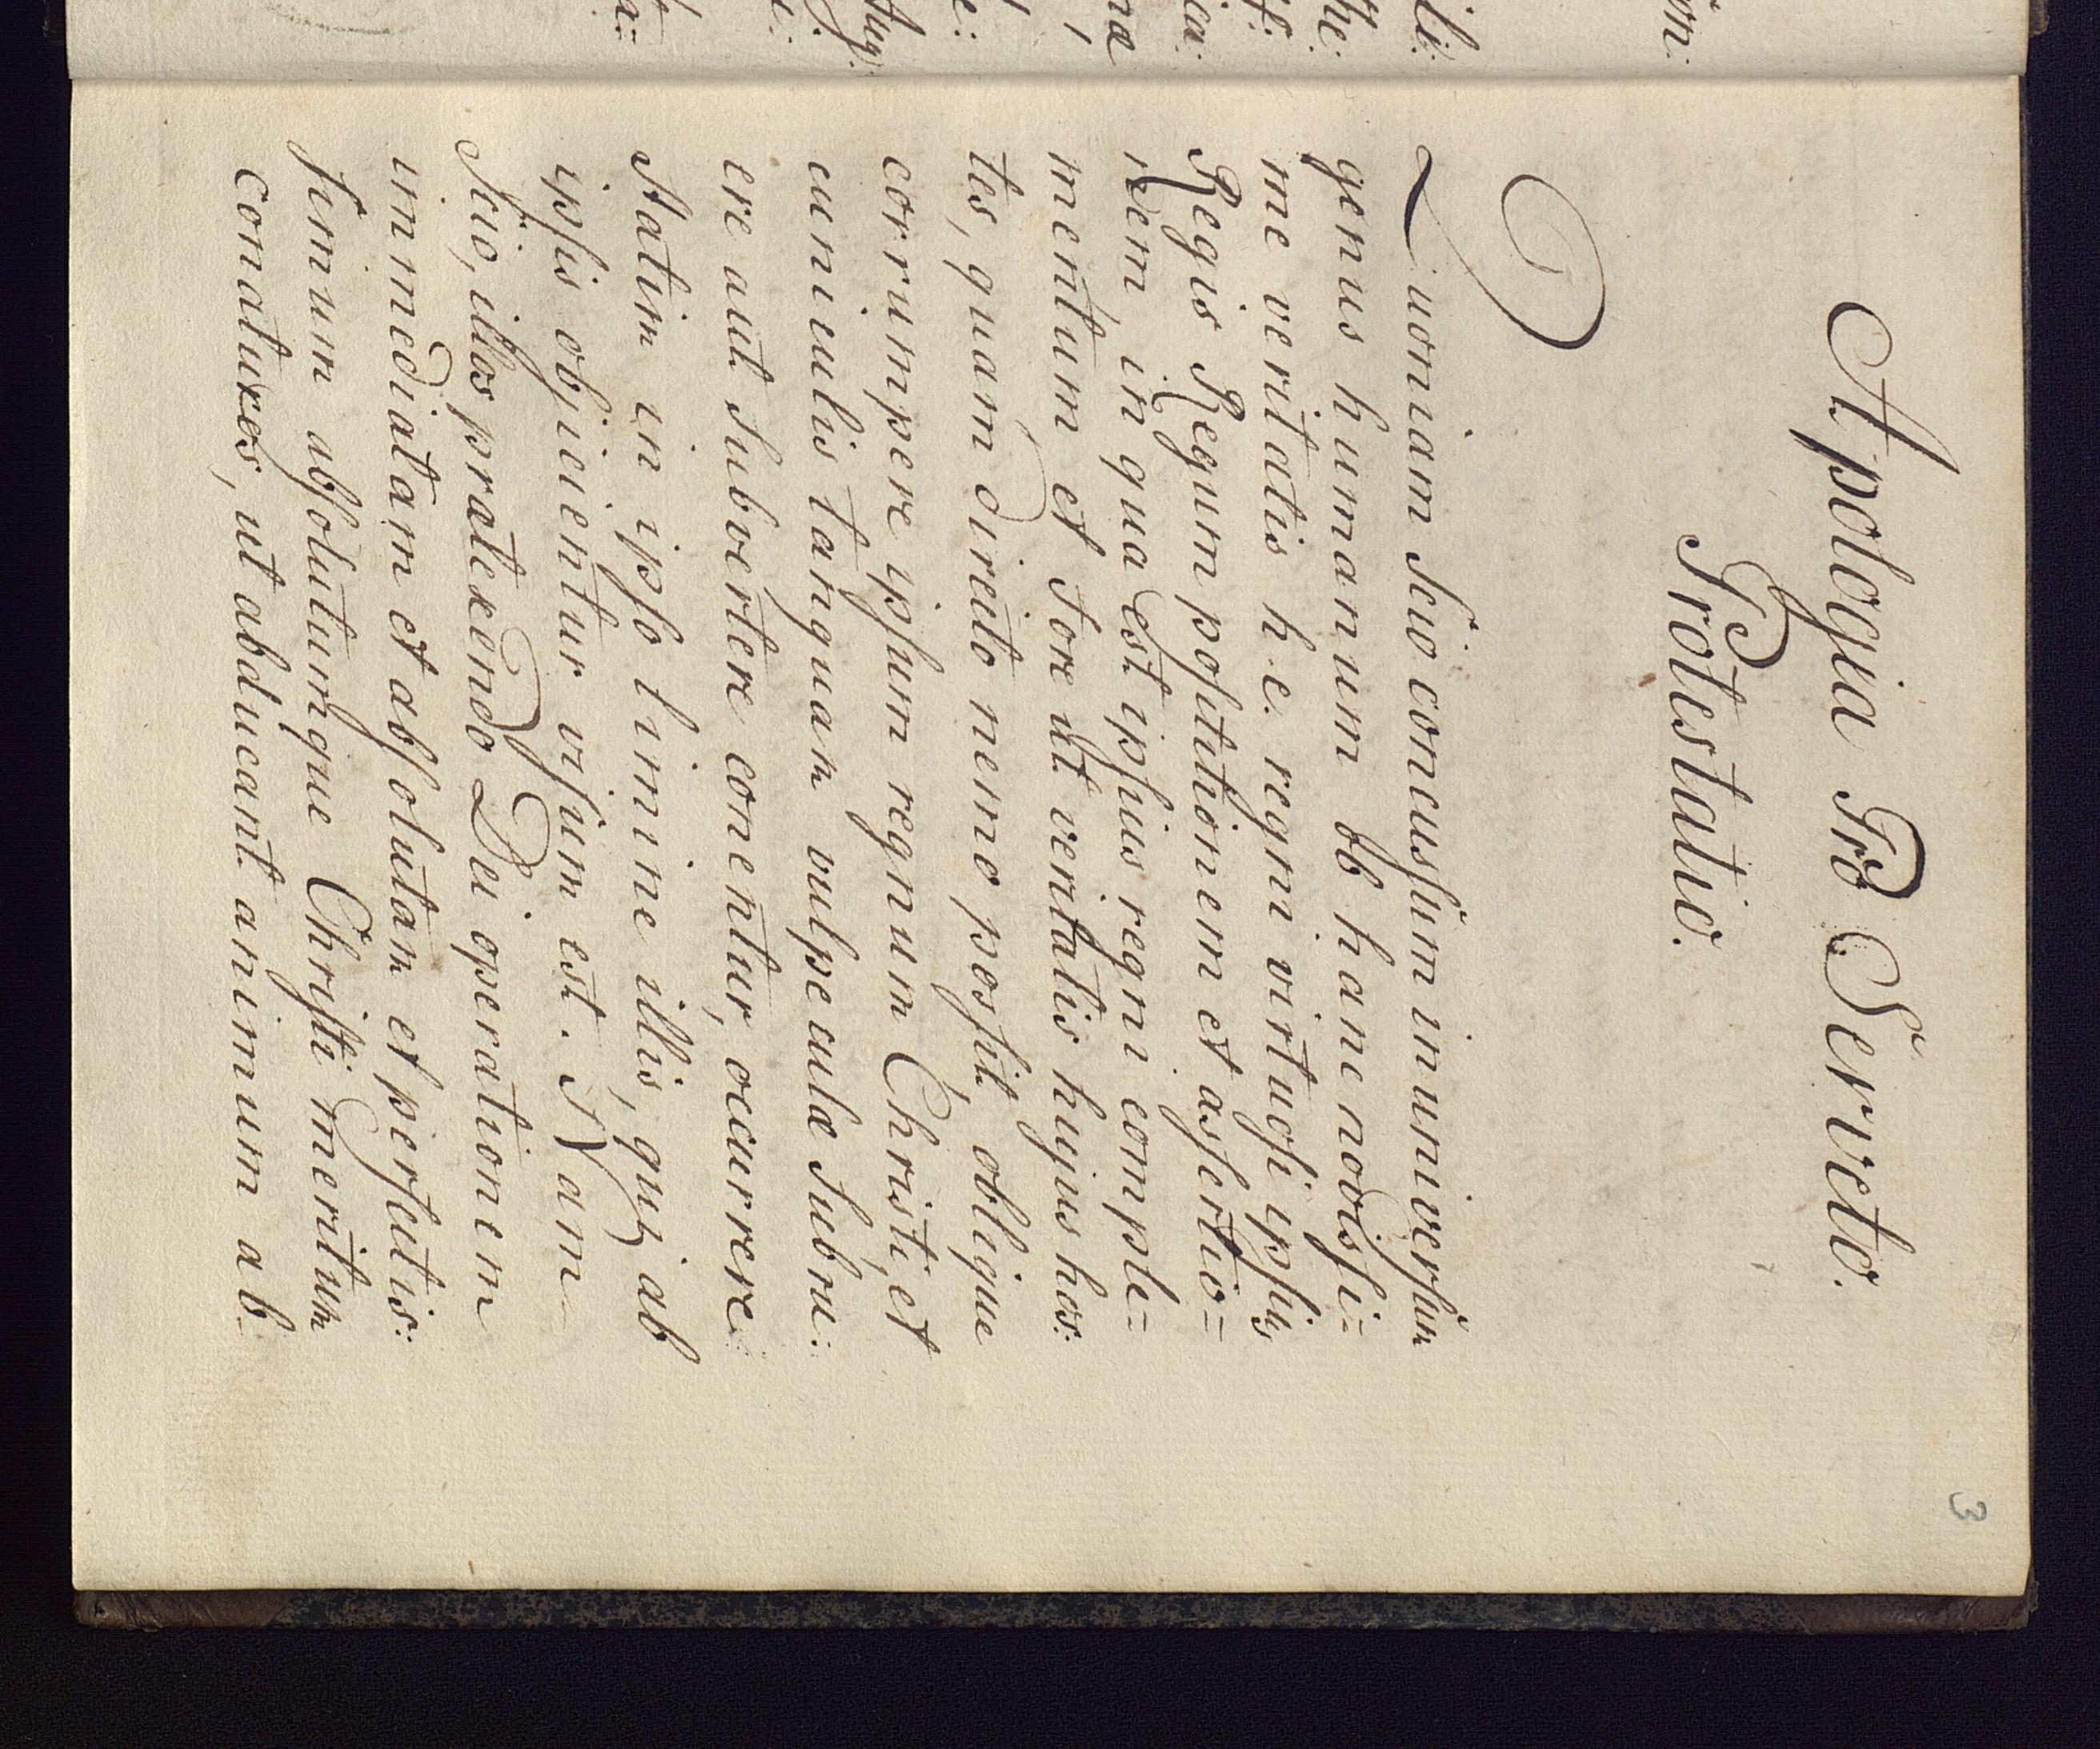 3
Apologia Pro Serveto.
Protestatio.
Quoniam Scio concussum in universum
genus humanum ob hanc novissi=
me veritatis h. e. regni virtuosi ipsius
Regis Regum positutionem et assertio=
nem in qua est ipsius regni comple=
mentum et fore ut veritatis hujus hos:
tes, quam directo nemo possit, oblique
corrumpere ipsum regnum Christi, et
cuniculis tanquam vulpeculæ Subru:
ere aut Subvertere conentur, occurrere:
Statim in ipso limine illis, quæ ab
ipsis objicientur visum est. Nam
Scio, illos prætexendo Dei operationem
immediatam et absolutam et perfectis:
simum absolutumque Christi meritum
conaturos, ut abducant animum ab